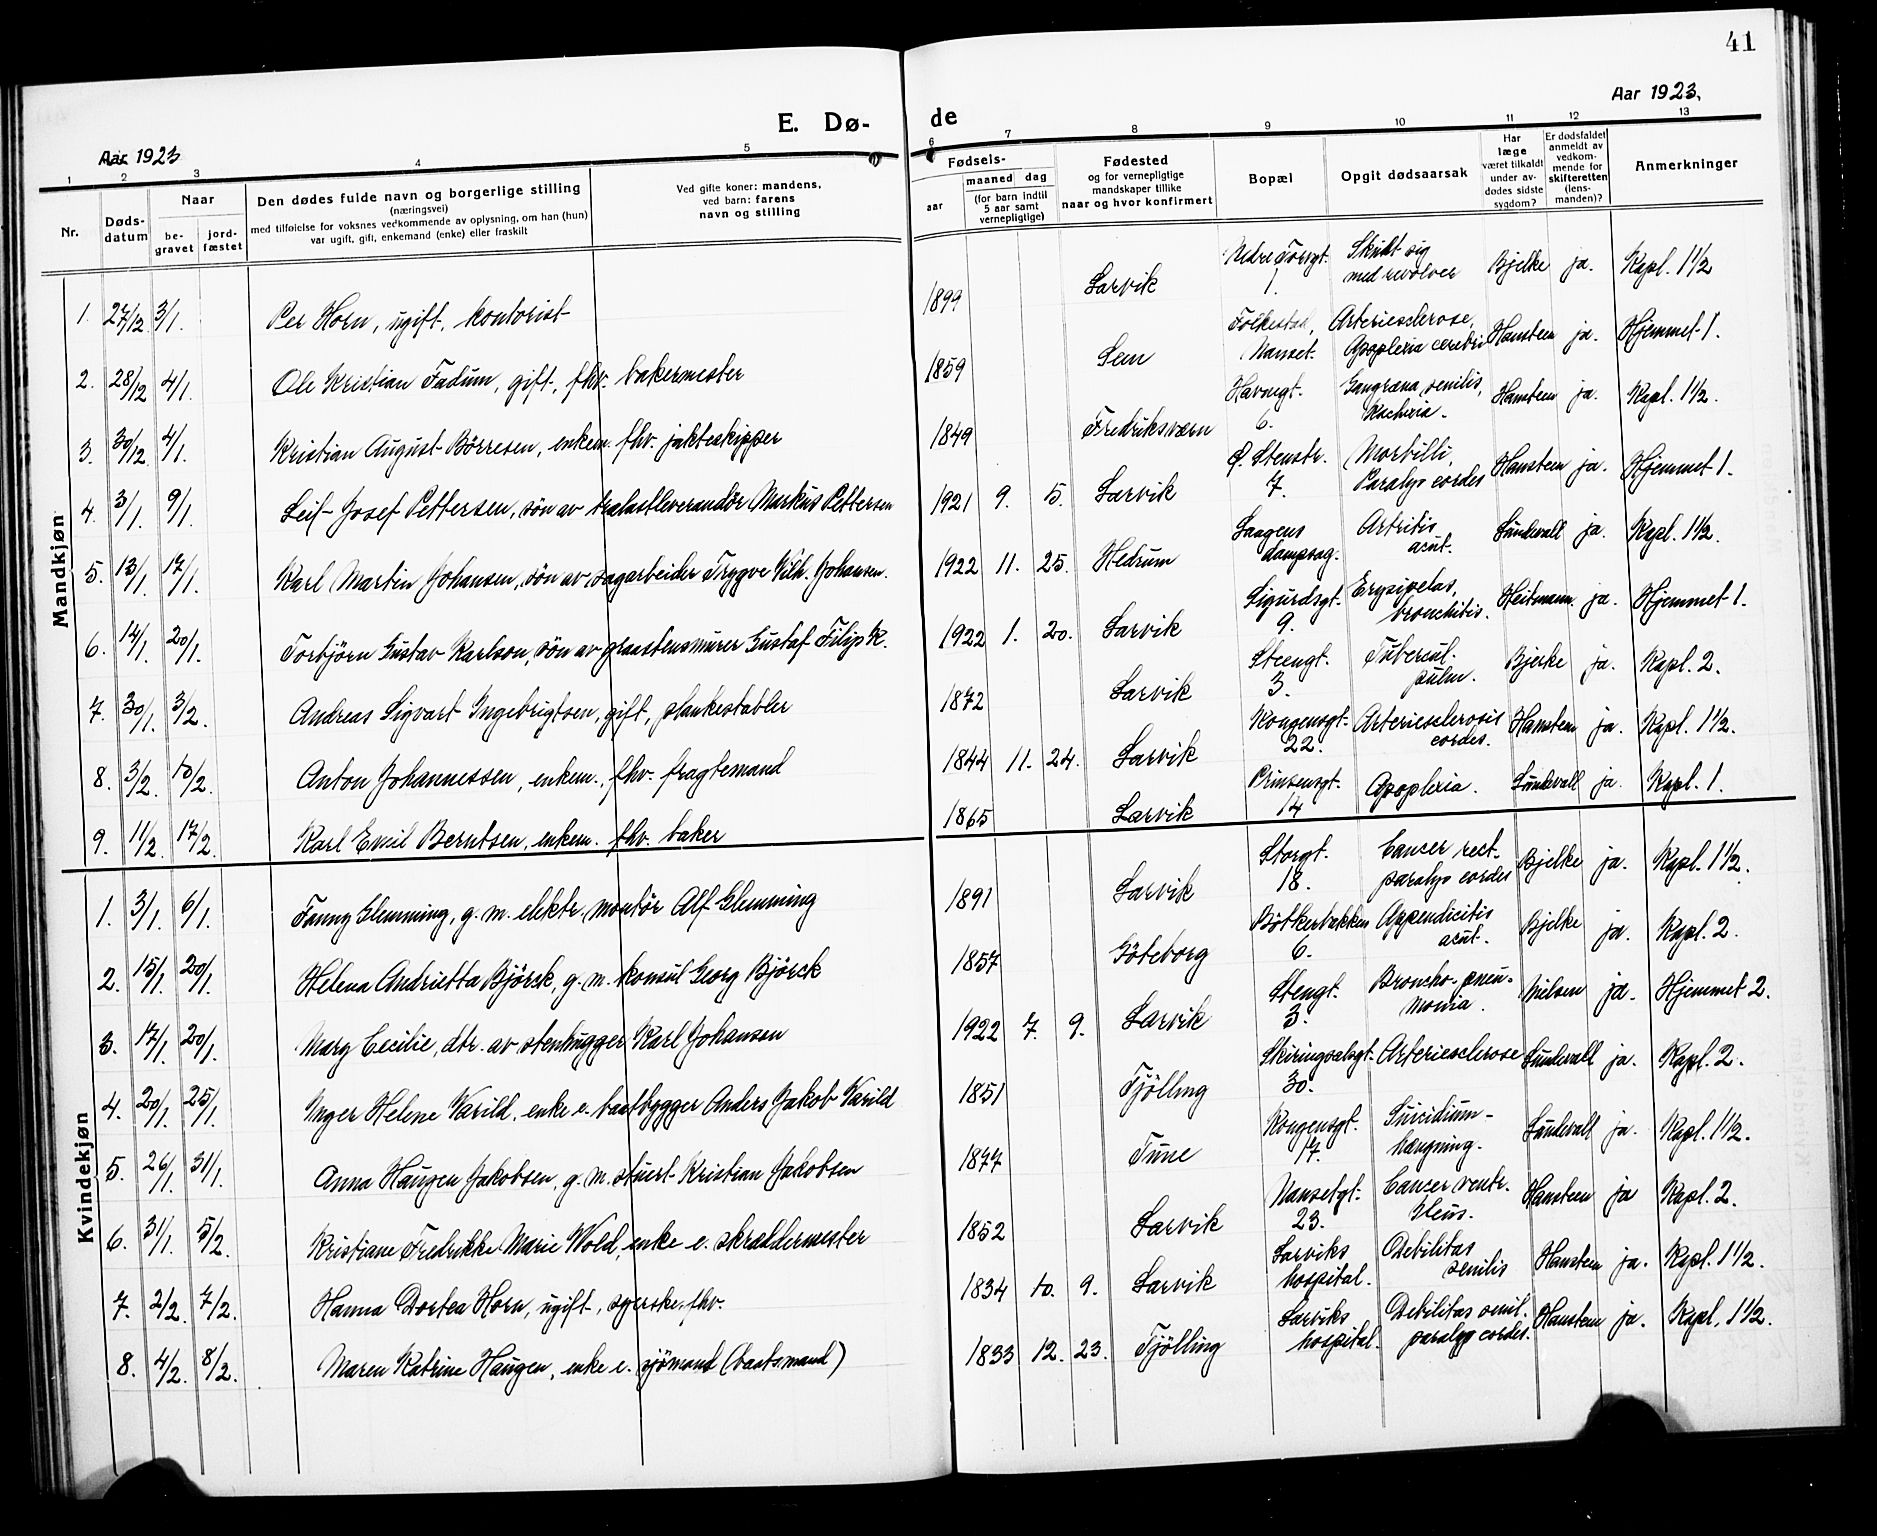 41
Aar 1923
E. Dø-
de
Aar 1923,
1 2 3 4 5
6 7 8 9 10 11 12 13
Nr.
Døds-
datum
Naar
be-
gravet
jord-
fæstet
Den dødes fulde navn og borgerlige stilling
(næringsvei)
med tilføielse for voksnes vedkommende av oplysning, om han (hun)
var ugift, gift, enkemand (enke) eller fraskilt
Ved gifte koner: mandens,
ved barn: farens
navn og stilling
Fødsels-
aar
maaned dag
(for barn indtil
5 aar samt
vernepligtige)
Fødested
og for vernepligtige
mandskaper tillike
naar og hvor konfirmert
Bopæl
Opgit dødsaarsak
Har
læge
været tilkaldt
under av-
dødes sidste
sygdom?
Er dødsfaldet
anmeldt av
vedkom-
mende for
skifteretten
(lens-
manden)?
Anmerkninger
Mandkjøn
1. 27/12 3/1. Per Horn, ugift, kontorist 1899 Larvik Nedre Torsgt. 1. Skudt sig med revolver Bjelke ja. Kapl. 1 1/2
2. 28/12 4/1. Ole Kristian Fadum, gift, fhv. bakermester 1859 Sem Folkestad, Nanset. Arteriesclerose, Apoplexia cerebri Hansteen ja. Hjemmet 1.
3. 30/12 4/1. Kristian August Börresen, enkem. fhv. jakteskipper 1849 Fredriksværn Havnegt. 6. Gangræna senilis, Kachexia. Hansteen ja. Kapl. 1 1/2.
4. 3/1. 9/1. Leif Josef Pettersen, sön av trælastleverandör Markus Pettersen 1921 9. 5. Larvik Ø. Stenstr. 7. Morbilli, Paralys cordes Hansteen ja. Hjemmet 1.
5. 13/1. 17/1. Karl Martin Johansen, sön av sagarbeider Trygve Vilh. Johansen. 1922 11. 25. Hedrum Laagens dampsag. Artritis acut. Sundevall ja. Kapl. 1 1/2.
6. 14/1. 20/1. Torbjörn Gustav Karlson, sön av graastensmurer Gustaf Filip K. 1922 1. 20. Larvik Sigurdsgt. 9. Erysipelas, bronchitis. Heitmann. ja. Hjemmet 1.
7. 30/1. 3/2. Andreas Sigvart Ingebrigtsen, gift, plankestabler 1872 Larvik Steengt. 3. Tubercul. pulm. Bjerke ja. Kapl. 2.
8. 3/2. 10/2. Anton Johannessen, enkem., fhv. fragtemand 1844 11. 24. Larvik Kongensgt. 22. Arteriesclerosis cordes. Hansteen ja. Kapl. 1 1/2.
9. 11/2. 17/2. Karl Emil Berntsen, enkem. fhv. baker 1865 Larvik Prinsensgt. 14 Apoplexia. Sundevall ja. Kapl. 1.
Kvindekjøn
1. 3/1. 6/1. Fanny Glemming, g. m. elektr. montör Alf Glemming 1891 Larvik Storgt. 18. Cancer rect. paralys cordes Bjelke ja. Kapl. 1 1/2.
2. 15/1. 20/1. Helena Andrietta Björck, g. m. konsul Georg Björck 1857 Göteborg Bötkerbakken 6. Appendicitis acut. Bjelke ja. Kapl. 2.
3. 17/1. 20/1. Mary Cecilie, dtr. av stenhugger Karl Johansen 1922 7. 9. Larvik Stengt. 3. Broncho-pneumonia. Nielsen ja. Hjemmet 2.
4. 20/1. 25/1. Inger Helene Varild, enke e. baatbygger Anders Jakob Varild 1851 Tjölling Skiringsalsgt. 30. Arteriesclerose Sundevall ja. Kapl. 2.
5. 26/1. 31/1. Anna Haugen Jakobsen, g. m. stuert Kristian Jakobsen 1877 Tune Kongensgt. 17. Suicidium - hængning. Sundevall ja. Kapl. 1 1/2.
6. 31/1. 5/2. Kristiane Fredrikke Marie Wold, enke e. skræddermester 1852 Larvik Nansetgt. 23. Cancer ventr. Ileus. Hansteen ja Kapl. 2.
7. 2/2. 7/2. Hanna Dortea Horn, ugift, syerske, fhv. 1834 10. 9. Larvik Larviks hospital. Debilitas senilis Hansteen ja. Kapl. 1 1/2.
8. 4/2. 8/2. Maren Katrine Haugen, enke e. sjömand (baatsmand) 1833 12. 23. Tjölling Larviks hospital. Debilitas senil. paralys cordes. Hansteen ja. Kapl. 1 1/2.